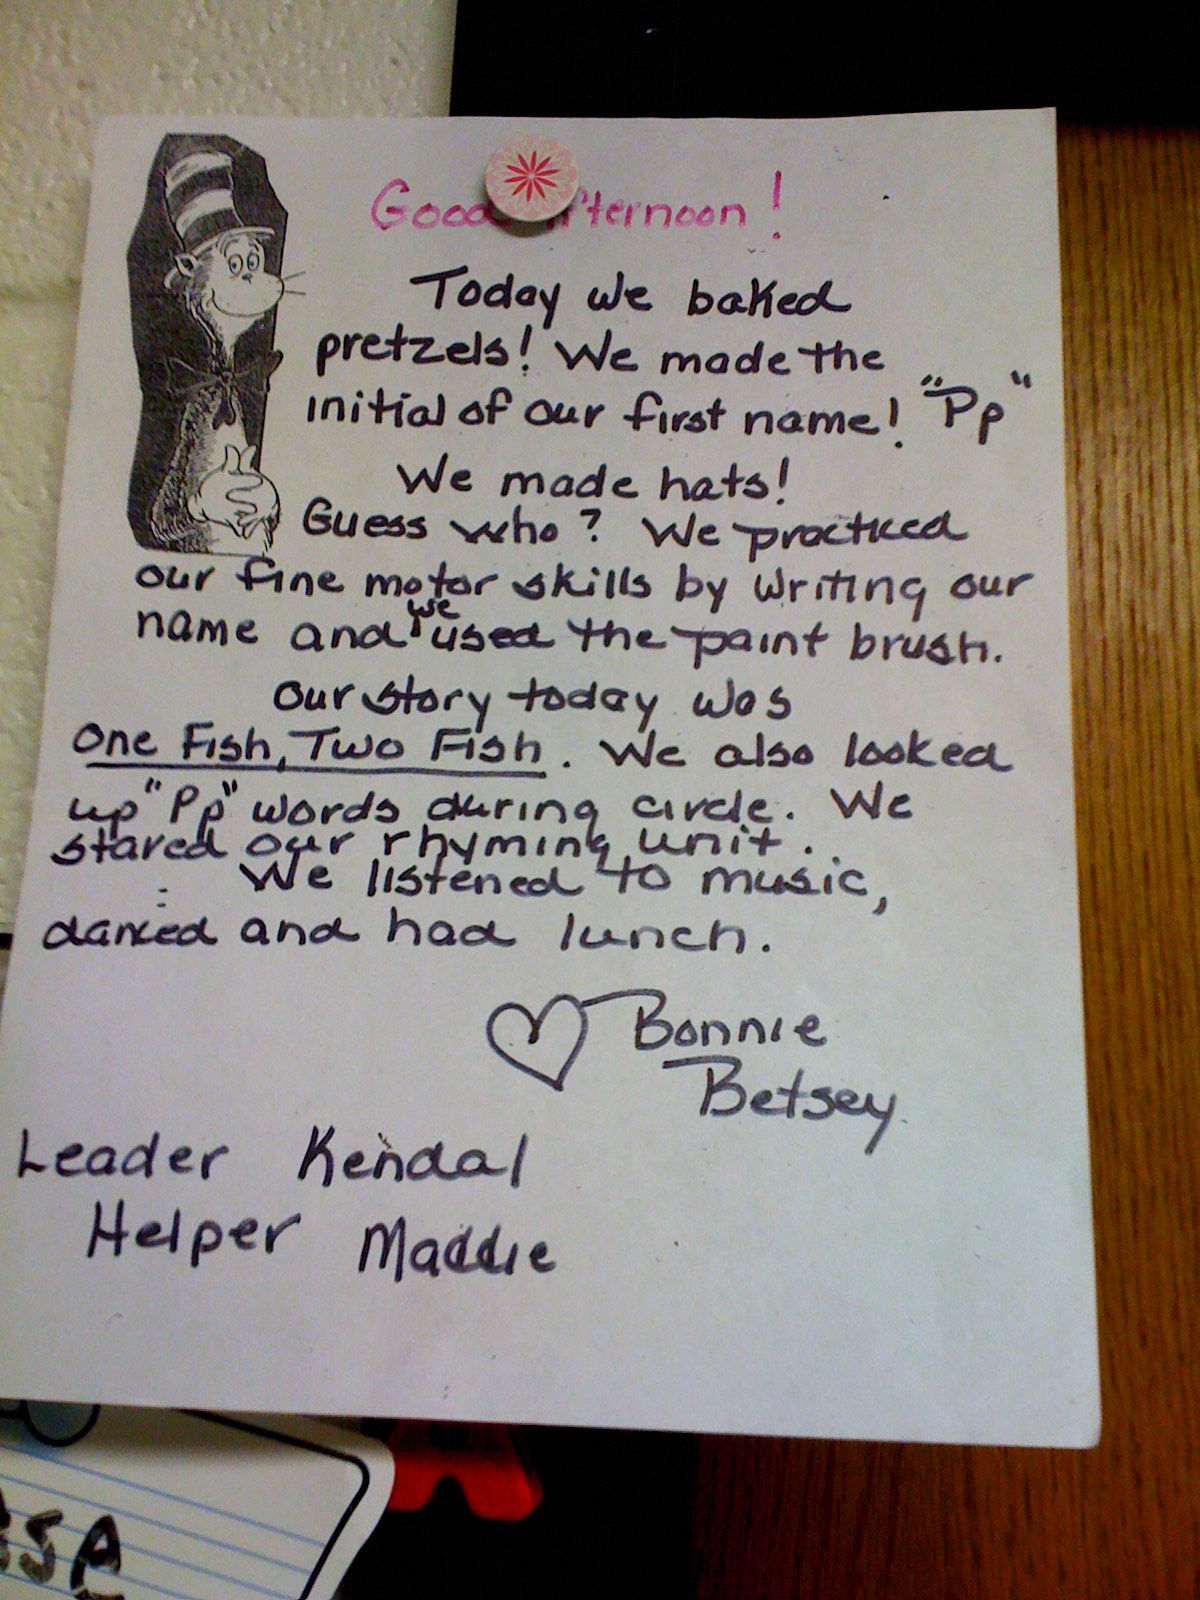 Good Afternoon!
Today we baked
pretzels! We made the
initial of our first name! "Pp"
We made hats!
Guess who? We practiced
our fine motor skills by writing our
name and we used the paint brush.
Our story today was
One Fish, Two Fish. We also looked
up "Pp" words during circle. We
stared our rhyming unit.
We listened to music,
danced and had lunch.
Bonnie
Betsey
Leader Kendal
Helper Maddie